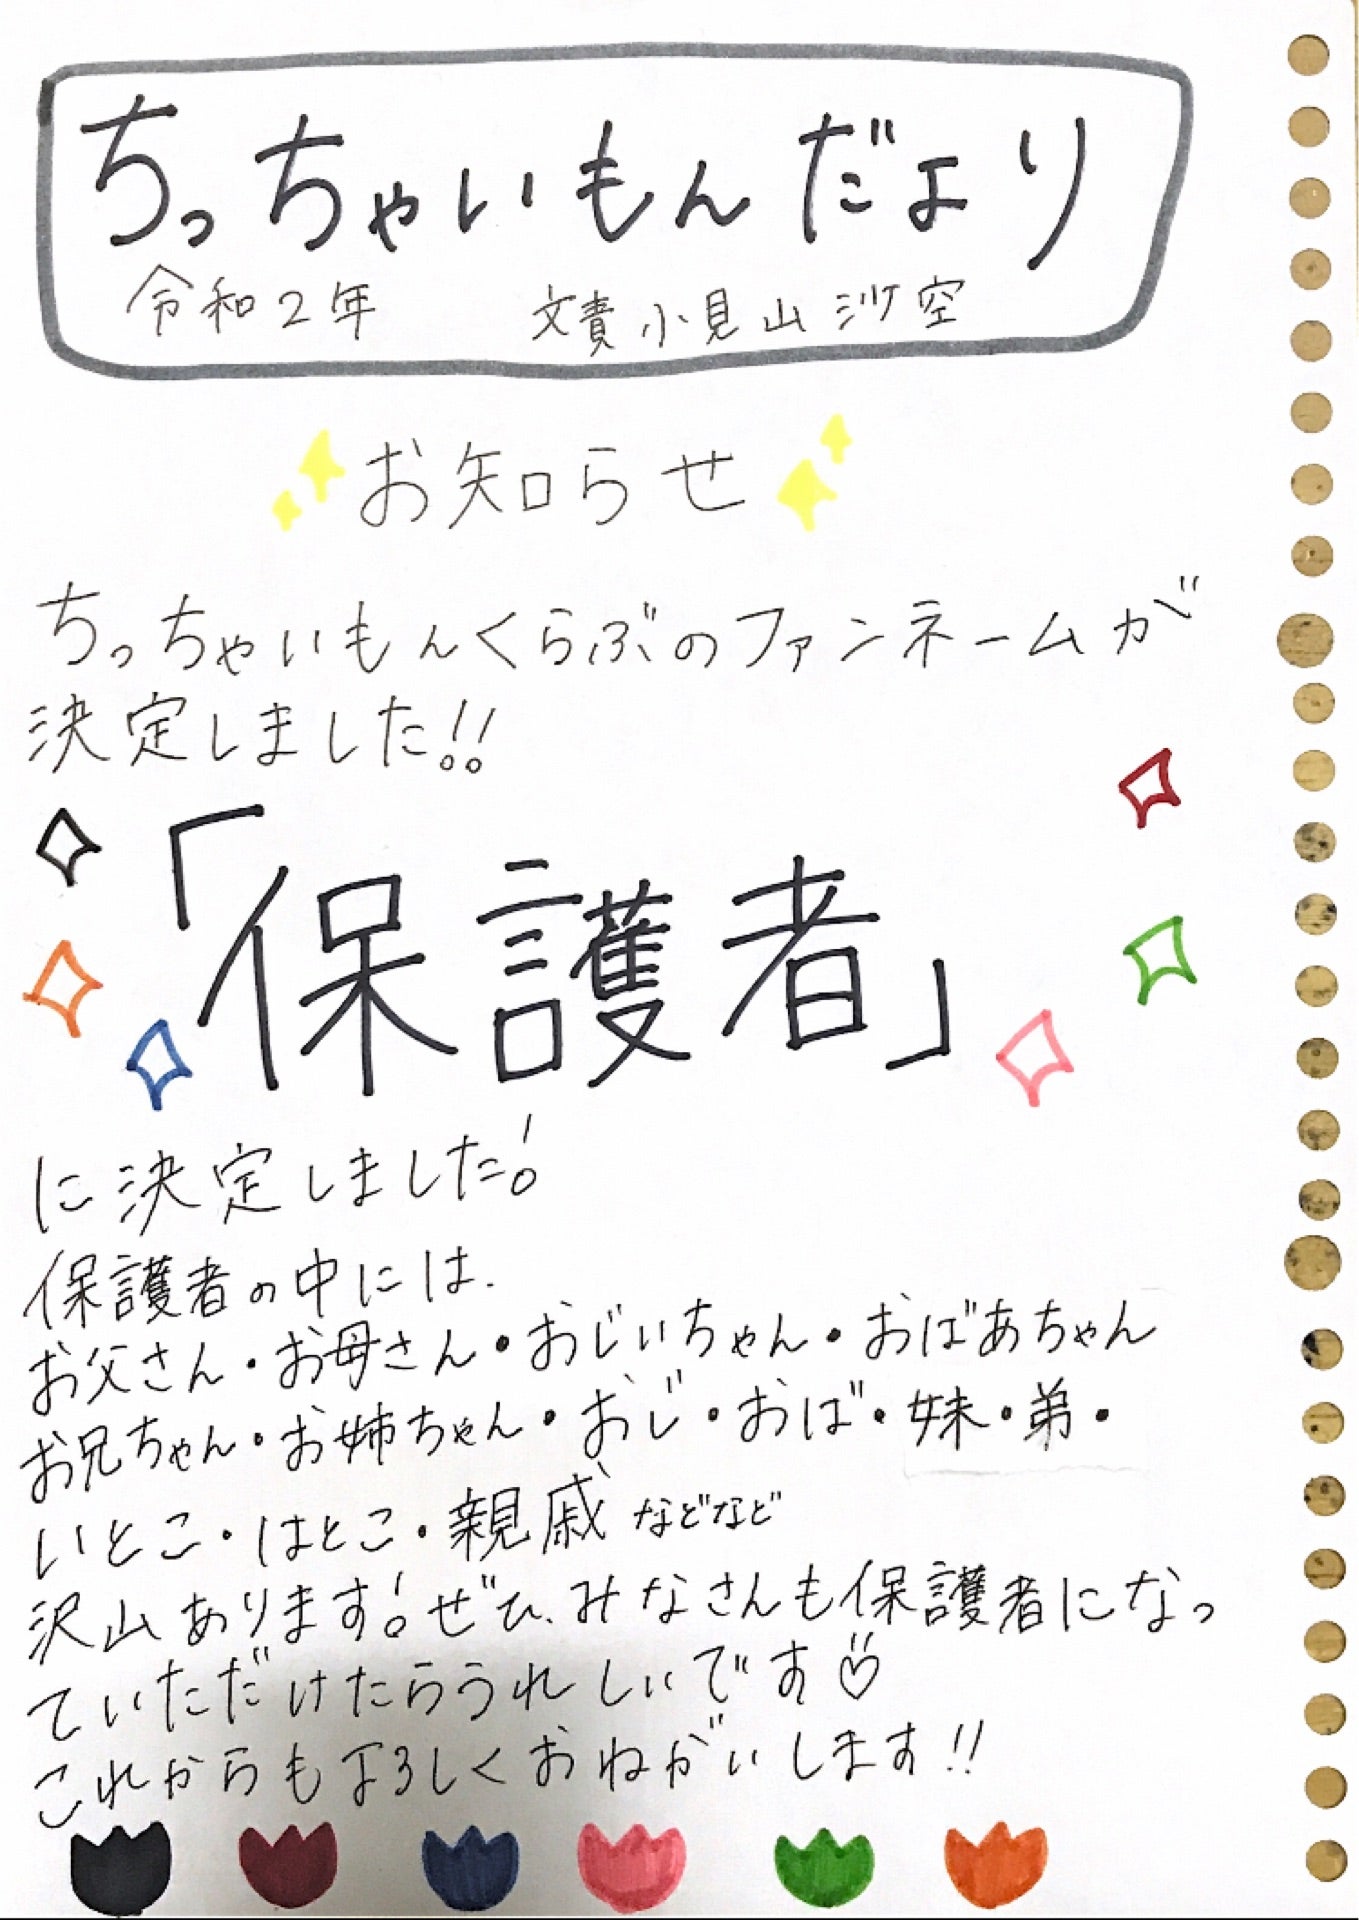 ちっちゃいもんだより
令和2年 文責 小見山沙空
お知らせ
ちっちゃいもんくらぶのファンネームが
決定しました!!
「保護者」
に決定しました!
保護者の中には、
お父さん・お母さん・おじいちゃん・おばあちゃん
お兄ちゃん・お姉ちゃん・おじ・おば・妹・弟・
いとこ・はとこ・親戚 などなど
沢山あります!ぜひ、みなさんも保護者になっ
ていただけたらうれしいです♡
これからもよろしくおねがいします!!